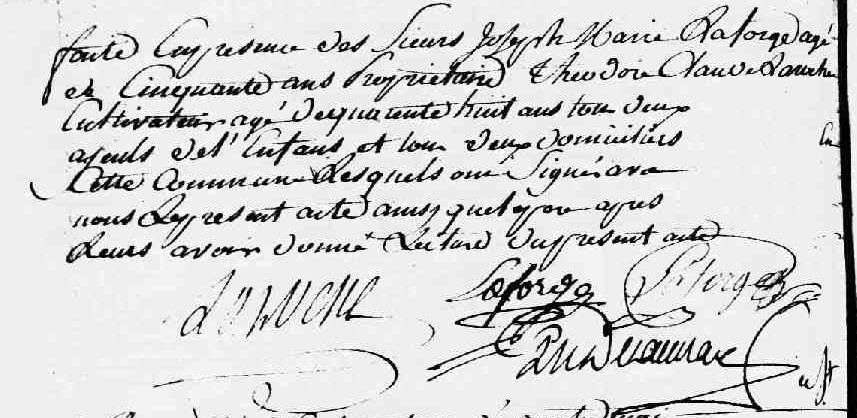 faite en presence des Sieurs Joseph Marie Laforge agé
de Cinquante ans Proprietaire Theodore Claude
Cultivateur agé de quarante huit ans tou deux
ayeuls de l'Enfans et tou deux domiciliers
Cette Commune Lesquels ont Signé avec
nous Le present acte ainsy que le pere apres
Leurs avoir donné Lecture du present acte
Laforge Laforge